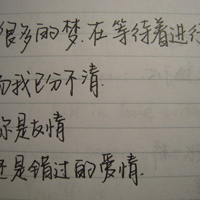 很多的梦.在等待着进行
而我已分不清.
你是友情
还是错过的爱情.